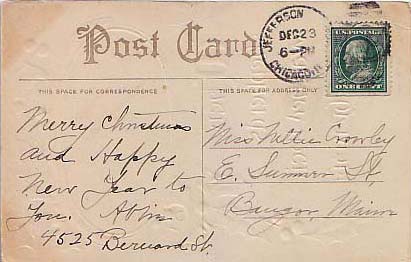 Post Card
JEFFERSON
DEC 23
6-PM
CHICAGO, ILL
U.S. POSTAGE
ONE CENT
THIS SPACE FOR CORRESPONDENCE
THIS SPACE FOR ADDRESS ONLY
Merry Christmas
and Happy
New Year to
You.
4525 Bernard St.
Miss Nellie Crowley
E. Summer St,
Bangor, Maine